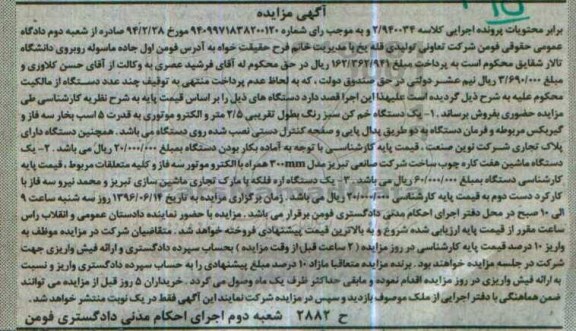 آگهی مزایده
برابر محتویات پرونده اجرایی کلاسه ۲/۹۴۰۰۳۴ و به موجب رای شماره ۹۴۰۹۹۷۱۸۳۸۲۰۰۱۲۰ مورخ ۹۴/۲/۲۸ صادره از شعبه دوم دادگاه
عمومی حقوقی فومن شرکت تعاونی تولیدی قله یخ با مدیریت خانم فرح حقیقت خواه به آدرس فومن اول جاده ماسوله روبروی دانشگاه
تالار شقایق محکوم است به پرداخت مبلغ ۱۶۲/۳۶۲/۹۴۱ ریال در حق محکوم له آقای فرشید عصری به وکالت از آقای حسن کلاوری و
مبلغ ۳/۶۹۰/۰۰۰ ریال نیم عشر دولتی در حق صندوق دولت ، که به لحاظ عدم پرداخت منتهی به توقیف چند عدد دستگاه از مالکیت
محکوم علیه به شرح ذیل گردیده است علیهذا این اجرا قصد دارد دستگاه های ذیل را بر اساس قیمت پایه به شرح نظریه کارشناسی طی
مزایده حضوری بفروش برساند. ۱- یک دستگاه خم کن سبز رنگ بطول تقریبی ۲/۵ متر و الکترو موتوری به قدرت ۵ اسب بخار سه فاز و
گیربکس مربوطه و فرمان دستگاه به دو طریق پدال پایی و صفحه کنترل دستی نصب شده روی دستگاه می باشد. همچنین دستگاه دارای
پلاک تجاری شرکت نوین صنعت ، قیمت پایه کارشناسی با توجه به آماده بکار بودن دستگاه بمبلغ ۲۰/۰۰۰/۰۰۰ ریال می باشد. ۲- یک
دستگاه ماشین هفت کاره چوب ساخت شرکت صانعی تبریز مدل ۳۰۰mm همراه با الکترو موتور سه فاز و کلیه متعلقات مربوط ، قیمت پایه
کارشناسی دستگاه بمبلغ ۶۰/۰۰۰/۰۰۰ ریال می باشد. ۳- یک دستگاه اره فلکه با مارک تجاری ماشین سازی تبریز و محمد نیرو سه فاز با
کارکرد دست دوم به قیمت پایه کارشناسی ۲۰/۰۰۰/۰۰۰ ریال می باشد. زمان برگزاری مزایده به تاریخ ۱۳۹۶/۰۶/۱۴ روز سه شنبه ساعت ۹
الی ۱۰ صبح در محل دفتر اجرای احکام مدنی دادگستری فومن برقرار می باشد. مزایده با حضور نماینده دادستان عمومی و انقلاب راس
ساعت مقرر از قیمت پایه ارزیابی شده شروع و به بالاترین قیمت پیشنهادی فروخته خواهد شد. متقاضیان شرکت در مزایده موظف به
واریز ۱۰ درصد قیمت پایه کارشناسی در روز مزایده (۲ ساعت قبل از وقت مزایده ) بحساب سپرده دادگستری و ارائه فیش واریزی جهت
شرکت در جلسه مزایده خواهند بود. برنده مزایده متعاقبا مازاد ۱۰ درصد مبلغ پیشنهادی را به حساب سپرده دادگستری واریز و نسبت
به ارائه فیش واریزی در روز مزایده اقدام نموده و مابقی حداکثر ظرف یک ماه وصول می گردد. خریداران ۵ روز قبل از مزایده می توانند
ضمن هماهنگی با دفتر اجرایی از ملک موصوف بازدید و سپس در مزایده شرکت نمایند این آگهی فقط در یک نوبت منتشر خواهد شد.
ح ۲۸۸۲ شعبه دوم اجرای احکام مدنی دادگستری فومن